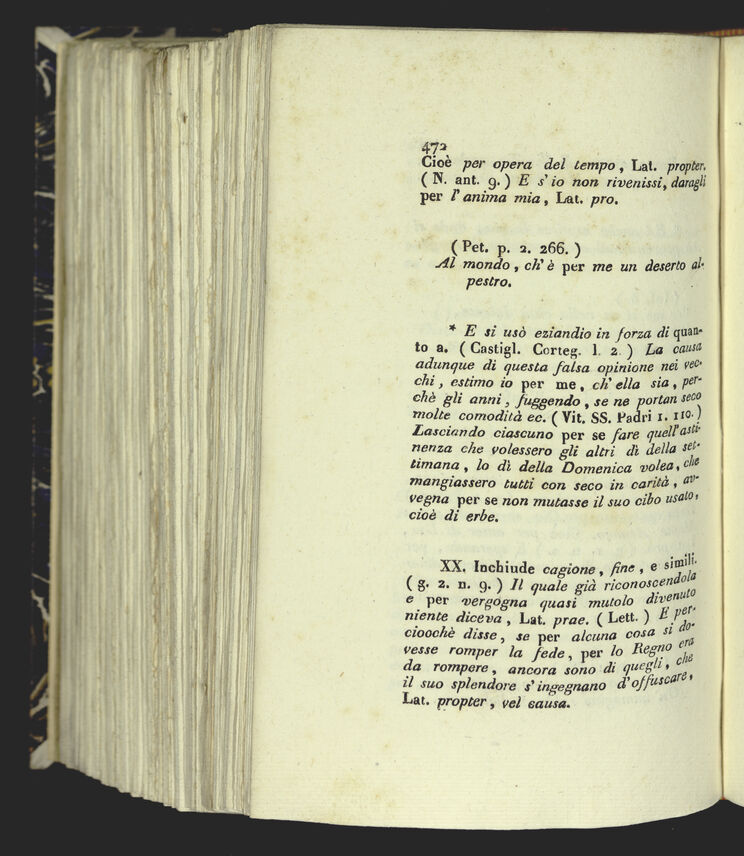 472
Cioè per opera del tempo, Lat. propter.
( N. ant. 9. ) E s' io non rivenissi, daragli
per l' anima mia, Lat. pro.
( Pet. p. 2. 266. )
Al mondo, ch' è per me un deserto al-
pestro.
* E si usò eziandio in forza di quan-
to a. ( Castigl. Corteg. l. 2. ) La causa
adunque di questa falsa opinione nei vec-
chi, estimo io per me, ch' ella sia, per-
chè gli anni, fuggendo, se ne portan seco
molte comodità ec. ( Vit. SS. Padri 1. 110. )
Lasciando ciascuno per se fare quell' asti-
nenza che volessero gli altri dì della set-
timana, lo dì della Domenica volea, che
mangiassero tutti con seco in carità, av-
vegna per se non mutasse il suo cibo usato,
cioè di erbe.
XX. Inchiude cagione, fine, e simili.
( g. 2. n. 9. ) Il quale già riconoscendola
e per vergogna quasi mutolo divenuto
niente diceva, Lat. prae. ( Lett. ) E per-
cioochè disse, se per alcuna cosa si do-
vesse romper la fede, per lo Regno era
da rompere, ancora sono di quegli, che
il suo splendore s' ingegnano d' offuscare,
Lat. propter, vel causa.